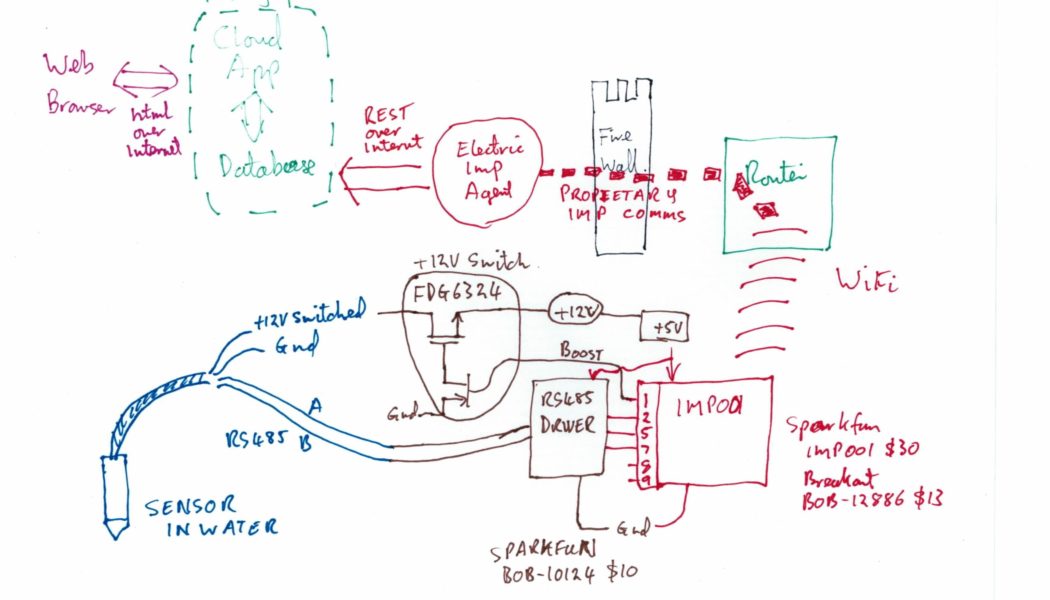 Cloud
App
Database
Web
Browser
html
over
Internet
REST
over
Internt
Electric
Imp
Agent
Fire
Wall
PROPIETARY
IMP COMMS
Router
WiFi
+12V Switch
FDG6324
+12V Switched
Gnd
+12V
+5V
BOOST
Gnd
RS485
DRIVER
1
2
5
7
8
9
IMP001
Sparkfun
IMP001 $30
Breakout
BOB-12886 $13
A
RS485 B
SENSOR
IN WATER
Gnd
SPARKFUN
BOB-10124 $10